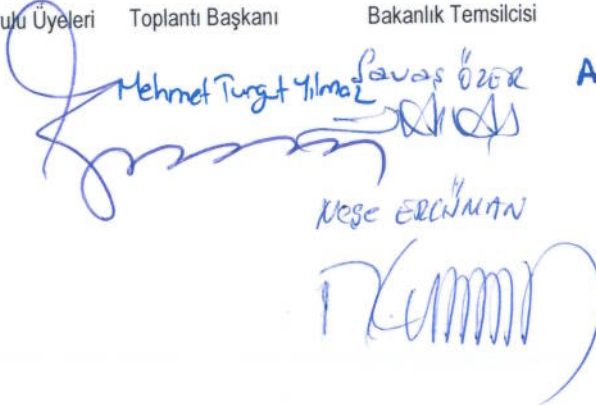 ulu Üyeleri Toplantı Başkanı Bakanlık Temsilcisi
Mehmet Turgut Yılmaz Savaş ÖZER A
Neşe ERCÜMAN